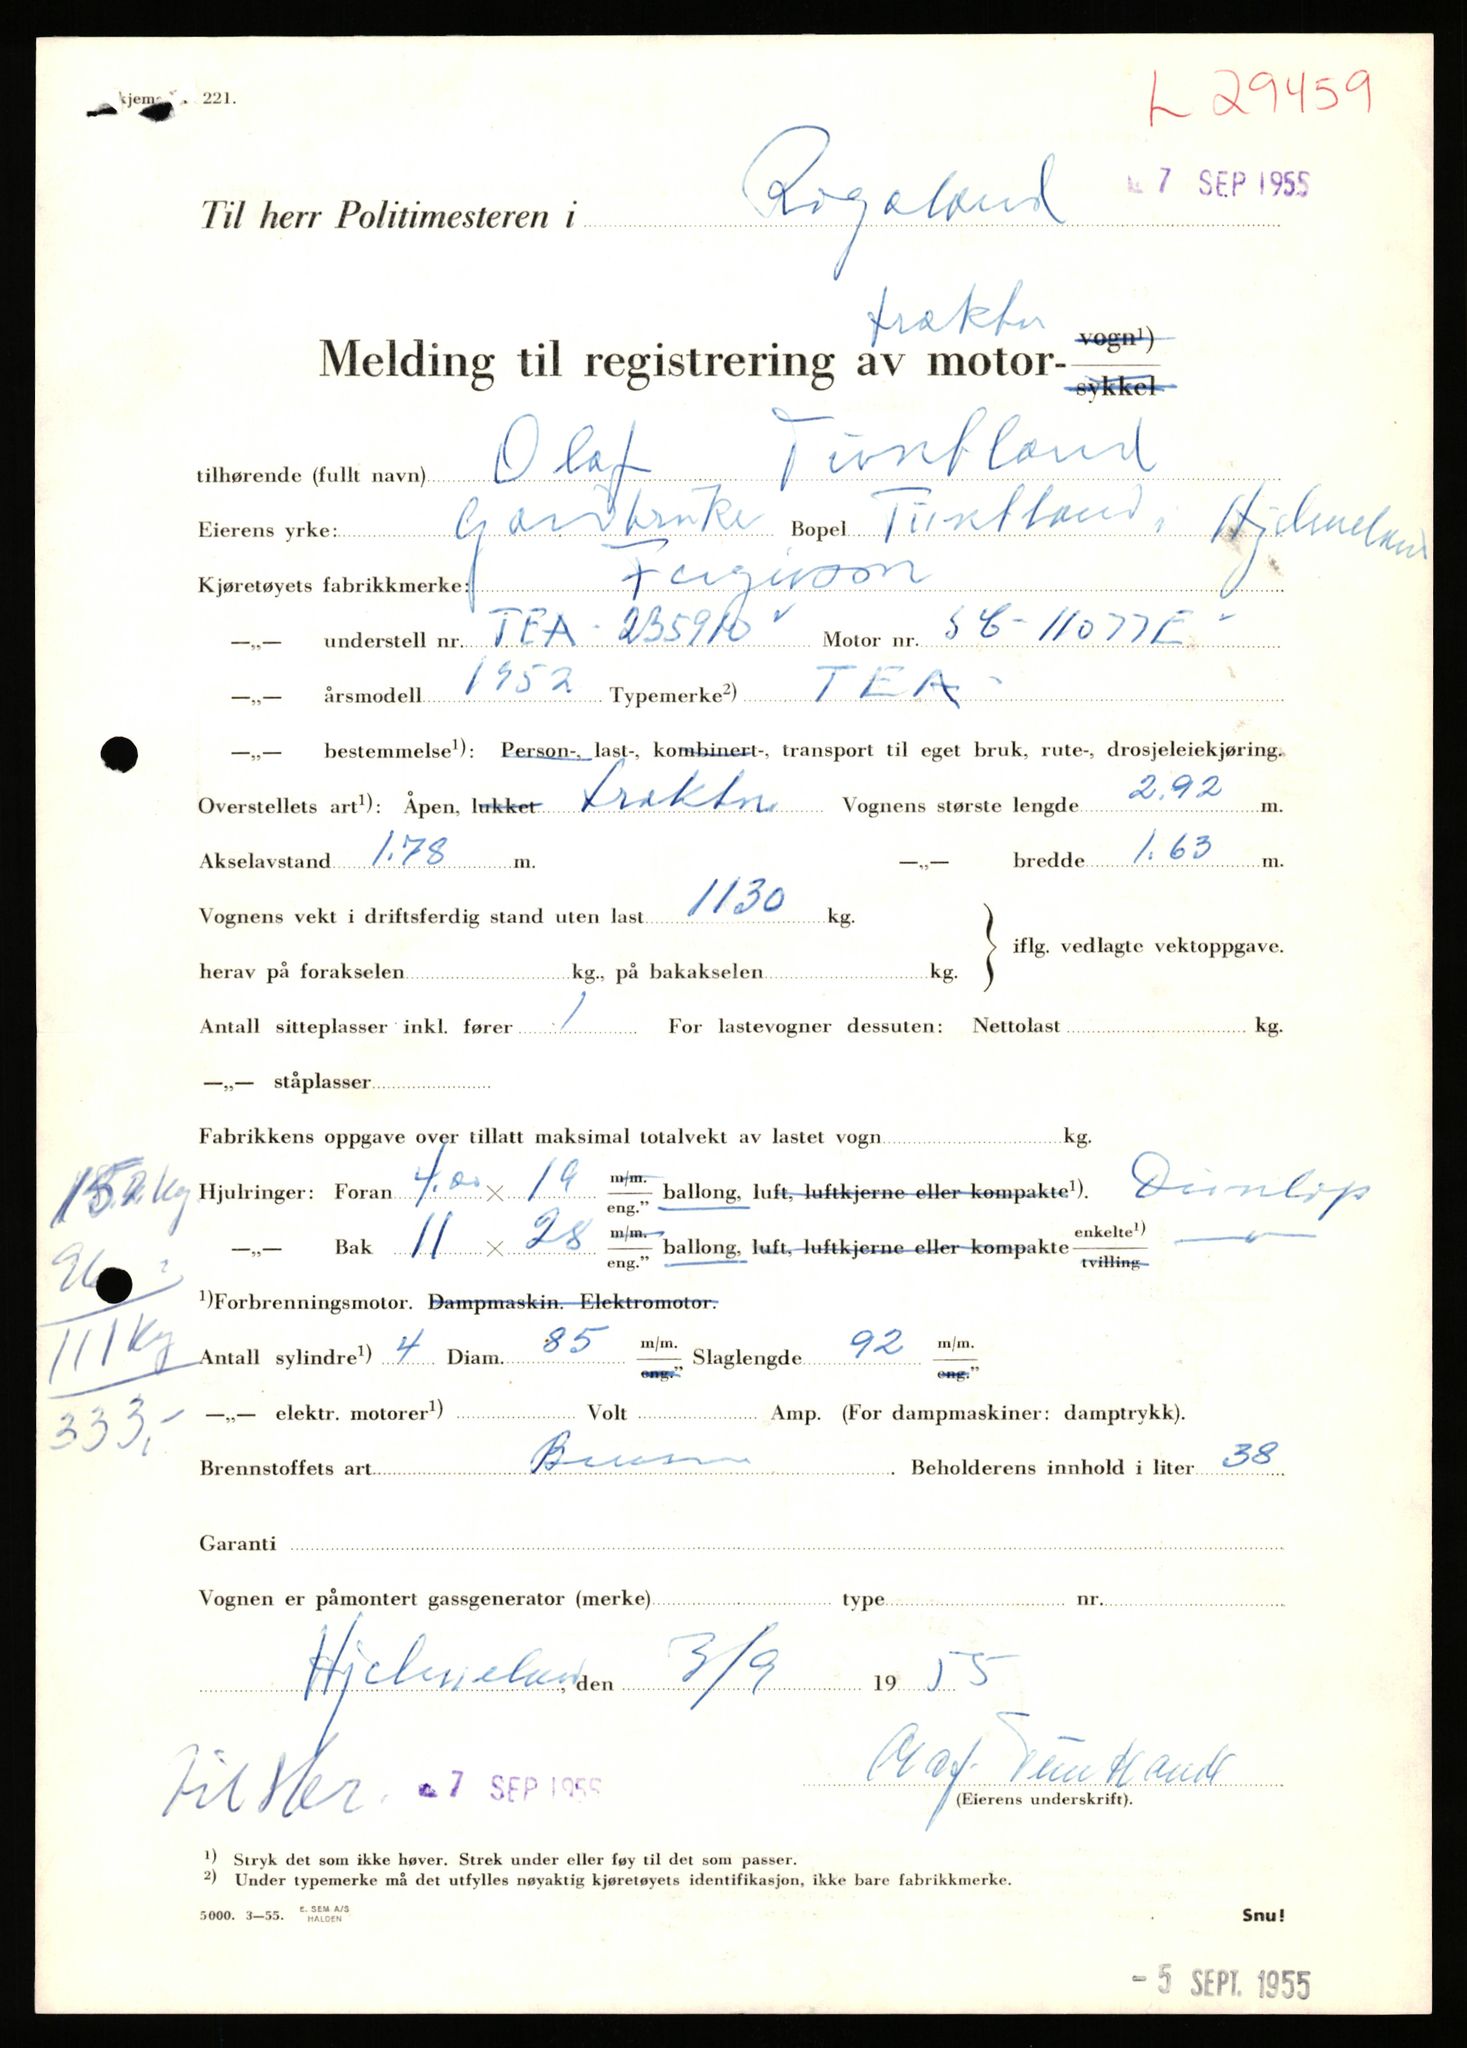 221.
L 29459
7 SEP 1955
Til herr Politimesteren i Rogaland
traktor
Melding til registrering av motor- vogn¹) sykkel
tilhørende (fullt navn) Olaf Tuntland
Eierens yrke: Gardbruke Bopel Tuntland, Hjelmeland
Kjøretøyets fabrikkmerke: Ferguson
—„— understell nr. TEA - 235910 Motor nr. S6-11077E
—„— årsmodell 1952 Typemerke²) TEA -
—„— bestemmelse¹): Person-, last-, kombinert-, transport til eget bruk, rute-, drosjeleiekjøring.
Overstellets art¹): Åpen, lukket traktor Vognens største lengde 2.92 m.
Akselavstand 1.78 m. —„— bredde 1.63 m.
Vognens vekt i driftsferdig stand uten last 1130 kg.
iflg. vedlagte vektoppgave.
herav på forakselen kg., på bakakselen kg.
Antall sitteplasser inkl. fører 1 For lastevogner dessuten: Nettolast kg.
—„— ståplasser
Fabrikkens oppgave over tillatt maksimal totalvekt av lastet vogn kg.
15 kg
Hjulringer: Foran 4.00 × 19 m/m. eng." ballong, luft, luftkjerne eller kompakte¹). Dunlop
96
—„— Bak 11 × 28 m/m. eng." ballong, luft, luftkjerne eller kompakte enkelte¹) tvilling —„—
¹)Forbrenningsmotor. Dampmaskin. Elektromotor.
111 kg
Antall sylindre¹) 4 Diam. 85 m/m. eng." Slaglengde 92 m/m. eng."
333,-
—„— elektr. motorer¹) Volt Amp. (For dampmaskiner: damptrykk).
Brennstoffets art Bensin. Beholderens innhold i liter 38
Garanti
Vognen er påmontert gassgenerator (merke) type nr.
Hjelmeland, den 3/9 1955
7 SEP 1955
Olaf Tuntland
(Eierens underskrift).
¹) Stryk det som ikke høver. Strek under eller føy til det som passer.
²) Under typemerke må det utfylles nøyaktig kjøretøyets identifikasjon, ikke bare fabrikkmerke.
5000. 3—55. E. SEM A/S HALDEN
Snu!
- 5 SEPT. 1955